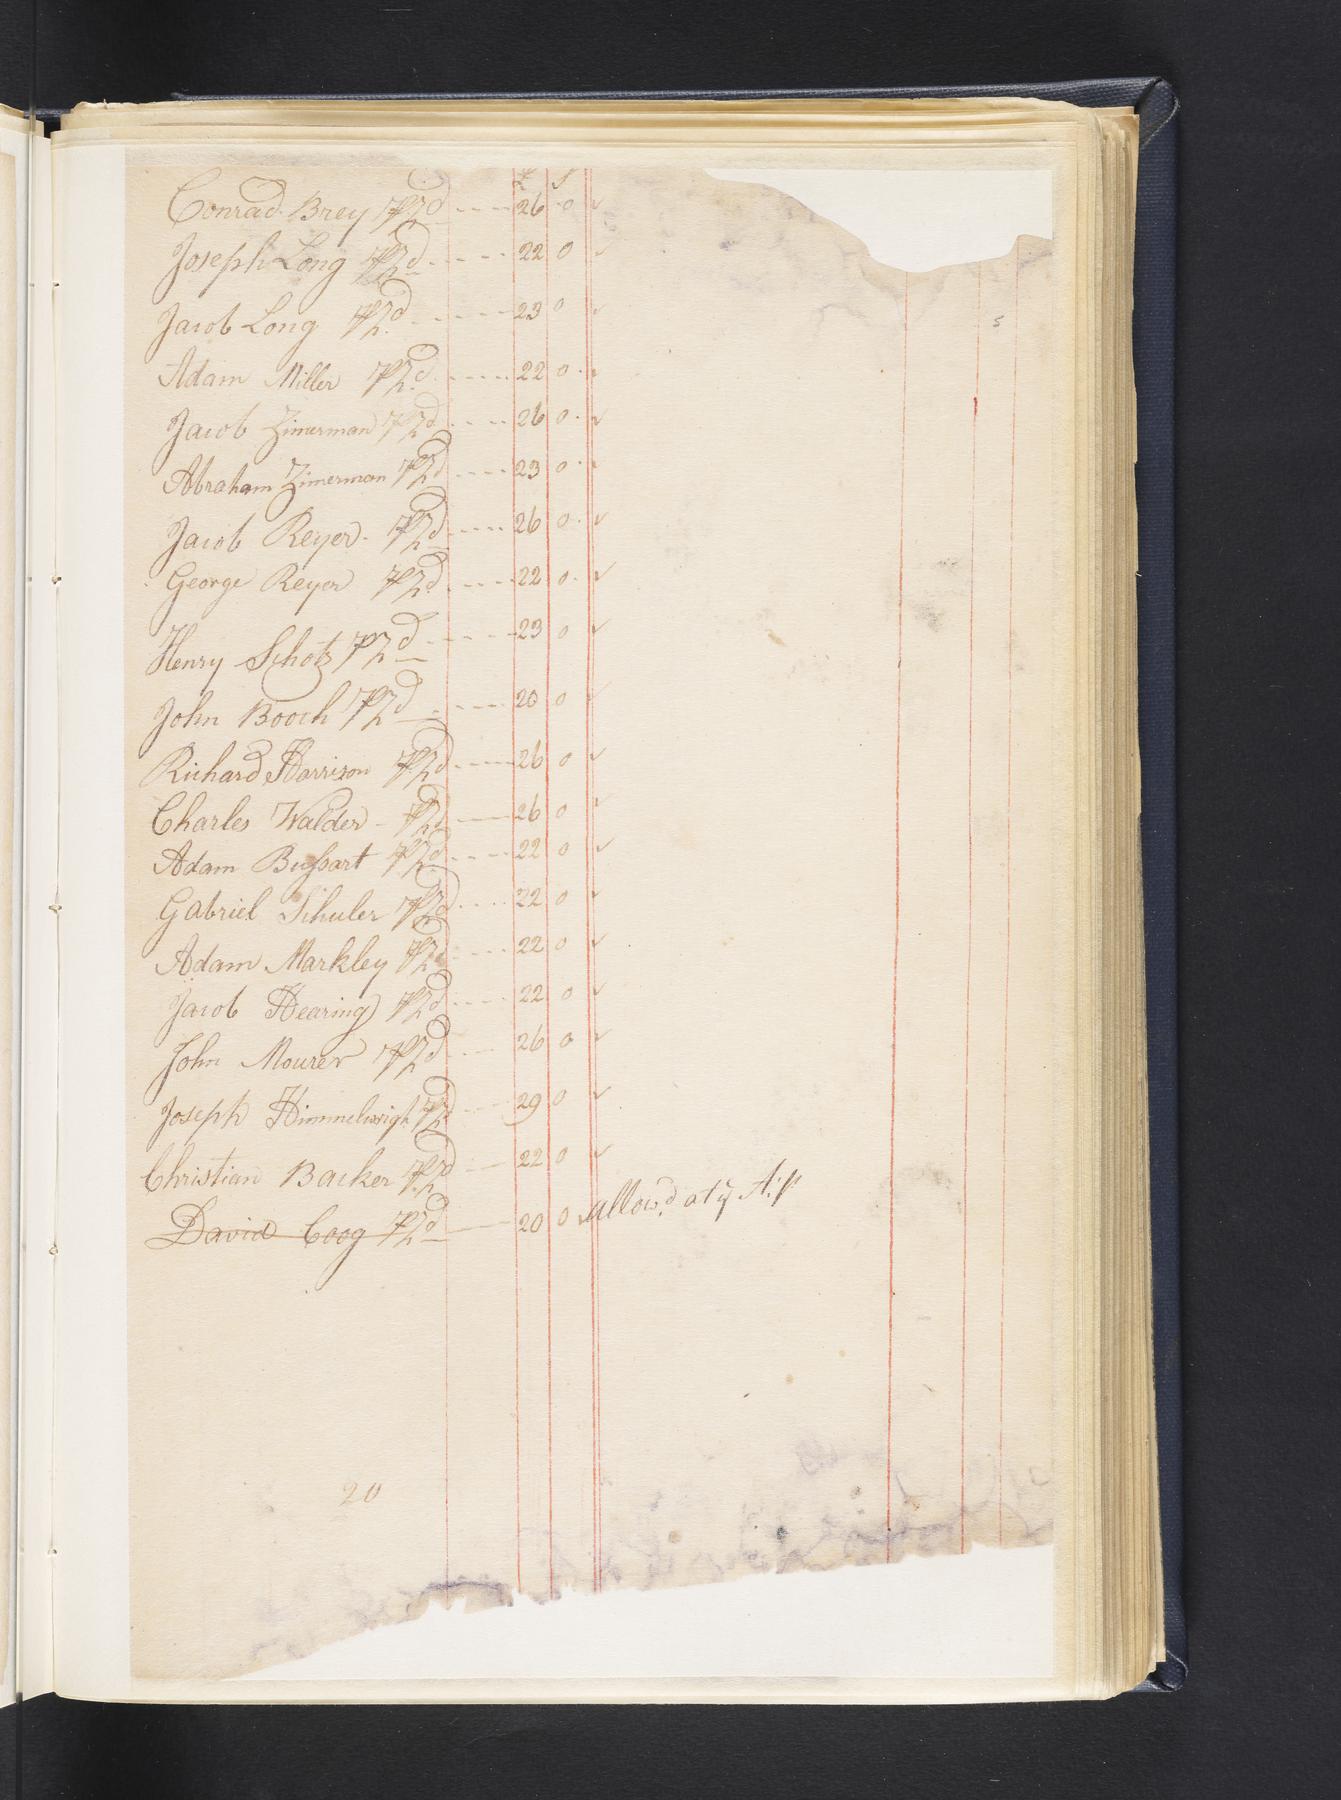 £ S
Conrad Brey Pd ---- 26 0 ✓
Joseph Long Pd ---- 22 0 ✓
Jacob Long Pd ---- 23 0 ✓
Adam Miller Pd ---- 22 0 ✓
Jacob Zimerman Pd ---- 26 0 ✓
Abraham Zimerman Pd ---- 23 0 ✓
Jacob Reyer Pd ---- 26 0 ✓
George Reyer Pd ---- 22 0 ✓
Henry Schotz Pd ---- 23 0 ✓
John Booch Pd ---- 20 0 ✓
Richard Harrison Pd ---- 26 0 ✓
Charles Walder Pd ---- 26 0 ✓
Adam Bussart Pd ---- 22 0 ✓
Gabriel Schuler Pd ---- 22 0 ✓
Adam Markley Pd ---- 22 0 ✓
Jacob Hearing Pd ---- 22 0 ✓
John Mourer Pd ---- 26 0 ✓
Joseph Himmelwright Pd ---- 29 0 ✓
Christian Backer Pd ---- 22 0 ✓
David Coog Pd ---- 20 0 ✓ allow'd at ye
20